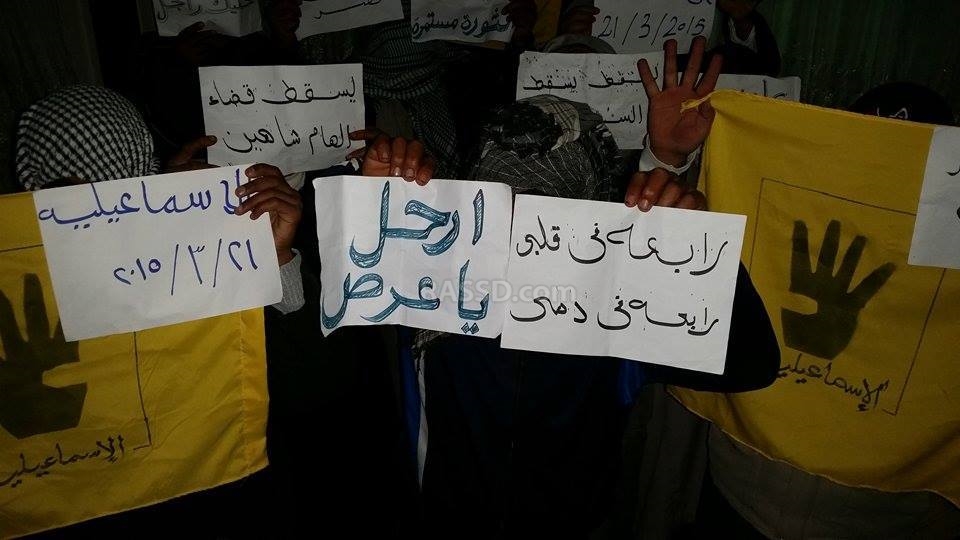 الثورة مستمرة
21/3/2015
يسقط قضاء
الهام شاهين
يسقط يسقط
الاسماعيليه
٢٠١٥/٣/٢١
ارحل
يا عرص
رابعه فى قلبى
رابعه فى دمى
الإسماعيلية
الإسماعيلية
PASSD.com